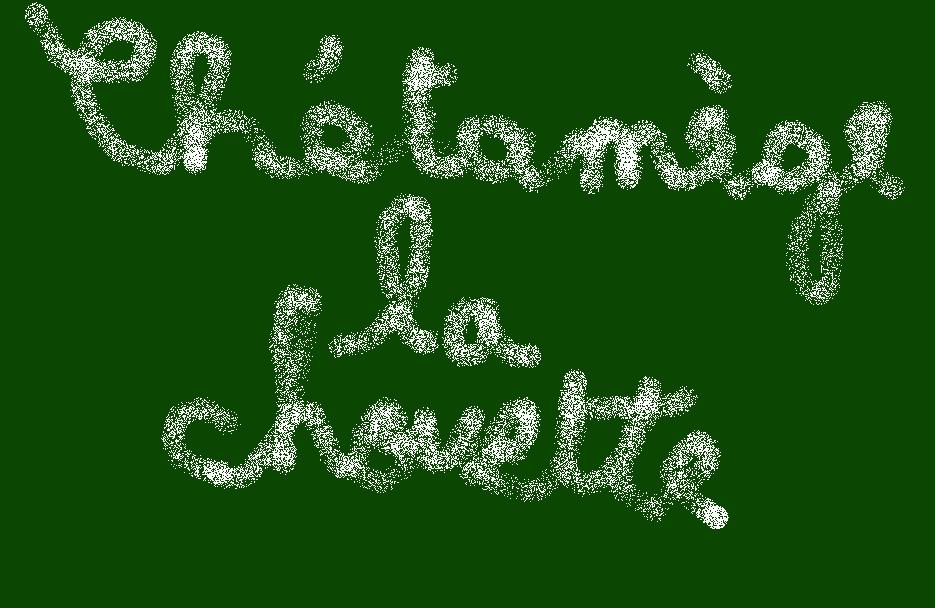 Chétamège
la
chouette